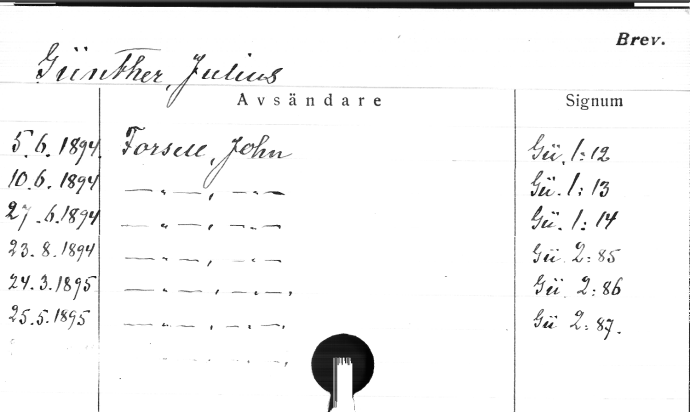 Brev.
Günther, Julius
Avsändare Signum
5.6.1894. Forsell, John Gü. 1:12
10.6.1894 — „ —, — „ — Gü. 1:13
27.6.1894 — „ —, — „ — Gü. 1:14
23.8.1894 — „ —, — „ — Gü 2:85
24.3.1895 — „ —, — „ —, Gü. 2:86
25.5.1895 — „ —, — „ —, Gü 2:87.
— „ —, — „ —,